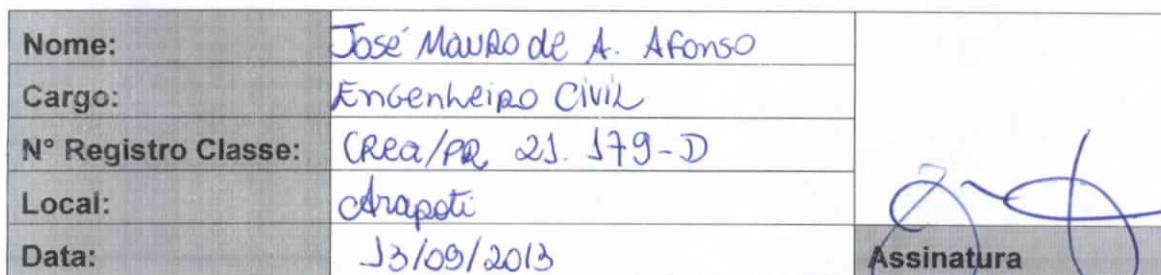 Nome: José Mauro de A. Afonso
Cargo: Engenheiro Civil
N° Registro Classe: CREA/PR 21.179-D
Local: Arapoti
Data: 13/09/2013
Assinatura